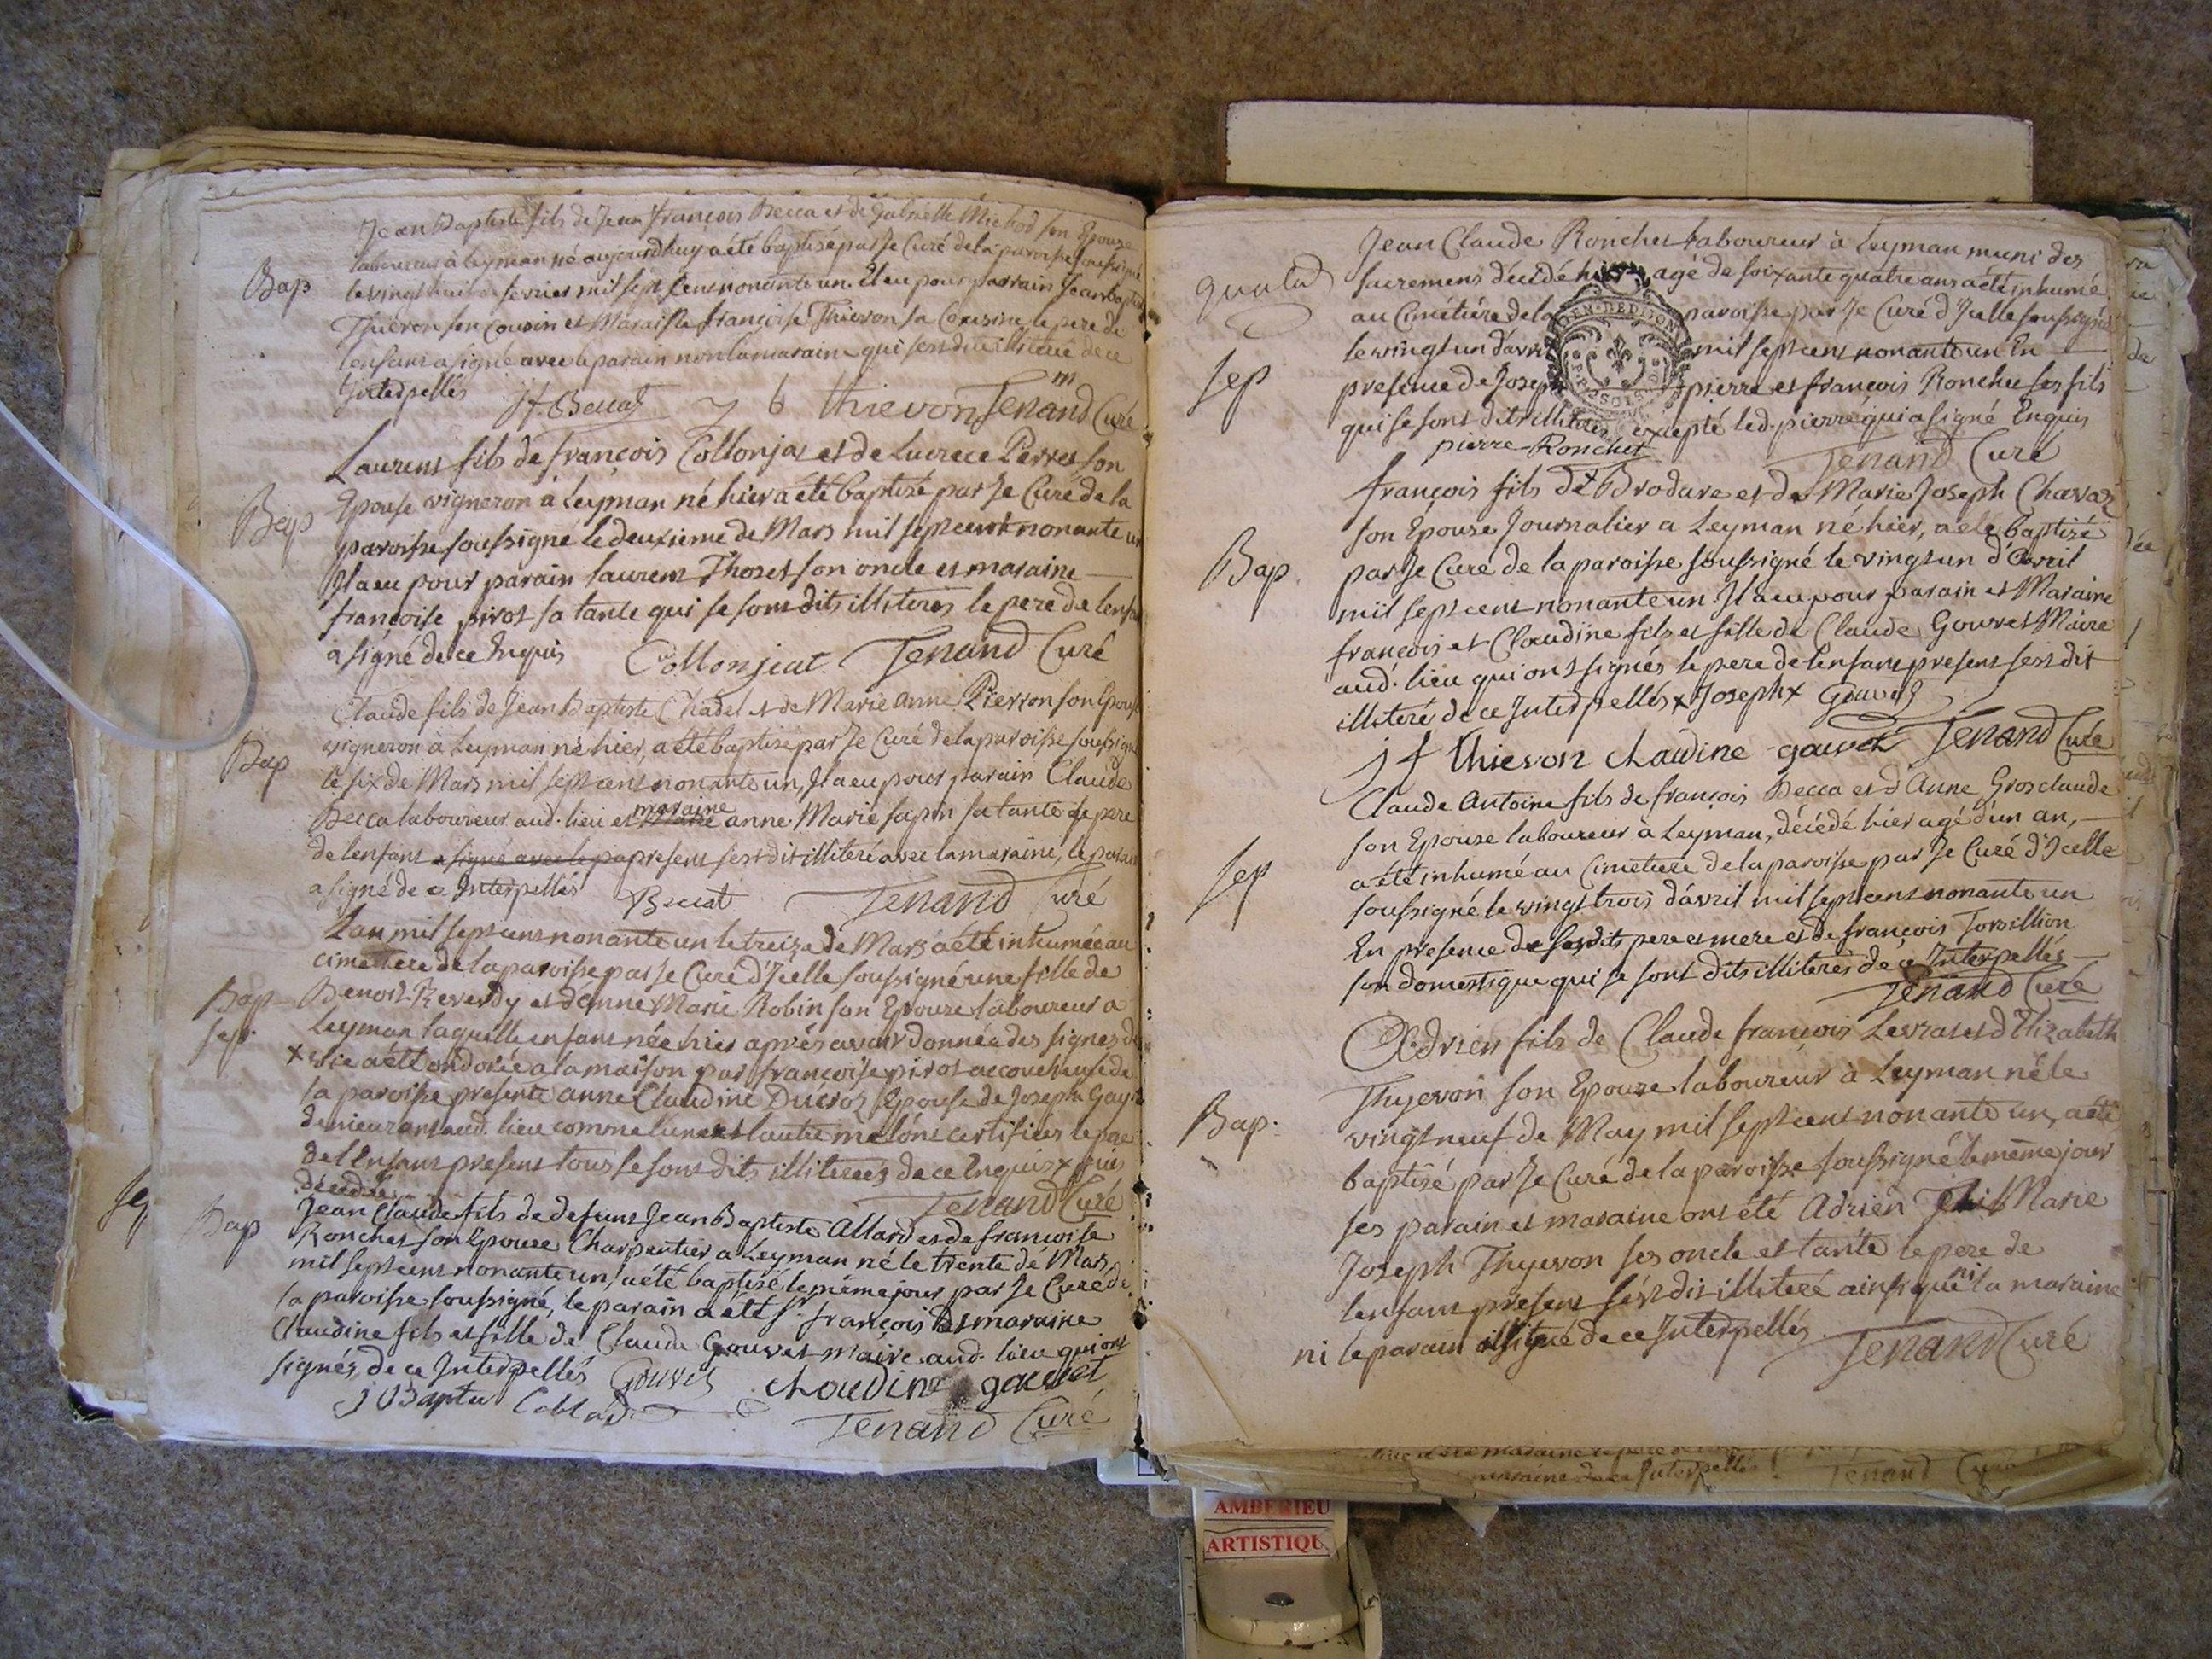 Jean Baptiste fils de Jean françois Becca et de Gabrielle Michod son Epouze
laboureur à Leyman né aujourdhuy a été baptisé par Je Curé de la paroisse soussigné
Bap
le vingt huit de fevrier mil sept cens nonante un. Il a eu pour parrain Jean baptiste
Thievon son Cousin et Maraine françoise Thievon sa Cousine le pere de
lenfant a signé avec le parain non la maraine qui sest dit illiterée de ce
Jnterpellés J f Beccat J b thievon Tenand Curé
Laurens fils de françois Collonjat et de Lucrece Perret son
Bap
Epouse vigneron à Leyman né hier a été baptisé par Je Curé de la
paroisse soussigné le deuxieme de Mars mil sept cent nonante un
Il a eu pour parain laurent Thozet son oncle et maraine
françoise pivot sa tante qui se sont dits illiterés le pere de lenfant
a signé de ce Enquis Collonjeat Tenand Curé
Claude fils de Jean Baptiste Chadel et de Marie Anne Pierron son Epouse
Bap
vigneron à Leyman né hier, a été baptisé par Je Curé de la paroisse soussigné
le six de Mars mil sept cens nonante un, Il a eu pour parain Claude
Becca laboureur aud. lieu et maraine anne Marie sapin sa tante le pere
de lenfant a signé avec le pa present sest dit illiteré avec la maraine, le parain
a signé de ce Interpellés Beccat Tenand Curé
Lan mil sept cens nonante un le treize de Mars a été inhumée au
cimetiere de la paroisse par Je Curé d'Icelle soussigné une fille de
Bap
sep.
Benoit Reverdy et d'anne Marie Robin son Epouze laboureur a
Leyman laquelle enfant née hier aprés avoir donnée des signes de
x vie a été ondoïée a la maison par françoise pivot accoucheuse de
la paroisse presente anne Claudine Ducroz Epouse de Joseph Gay
demeurant aud. lieu comme lune et lautre me lont certifiées le pere
de l'Enfant present tous se sont dits illiterées de ce Enquis x puis
decedée Tenand Curé
Sep
Bap
Jean Claude fils de defunt Jean Baptiste Allard et de francoise
Ronchet son Epouze Charpentier a Leyman né le trente de Mars
mil sept cens nonante un, a été baptisé le même jour par Je Curé de
la paroisse soussigné, le parain a été Sr françois et maraine
Claudine fils et fille de Claude Gouvet maire aud. lieu qui ont
signés de ce Interpellés Gouvet Claudine gouvet
Tenand Curé
Jean Claude Ronchet Laboureur à Leyman muni des
sacremens décédé hier agé de soixante quatre ans a été inhumé
au Cimétiére de la paroisse par Je Curé d'Icelle soussigné
GEN. DE DIJON
le vingt un d'avril mil sept cens nonante un En
Sep
presence de Joseph pierre et françois Ronchet ses fils
qui se sont dits illiterés excepté led. pierre qui a signé Enquis
pierre Ronchet Tenand Curé
françois fils de Brodare et de Marie Joseph Chavaz
son Epouze Journalier a Leyman né hier, a été baptizé
Bap.
par Je Curé de la paroisse soussigné le vingt un d'Avril
mil sept cens nonante un. Il a eu pour parain et Maraine
françois et Claudine fils et fille de Claude Gouvet Maire
aud. lieu qui ont signés le pere de lenfant present sest dit
illiteré de ce Interpellés x Joseph x Gouvet
J f thievon claudine gouvet Tenand Curé
Claude Antoine fils de françois Becca et d'Anne Grosclaude
son Epouze laboureur à Leyman, décédé hier agé d'un an,
Sep
a été inhumé au Cimetiere de la paroisse par Je Curé d'Icelle
soussigné le vingt trois d'avril mil sept cens nonante un
En presence de sesdits pere et mere et de françois Torvillion
son domestique qui se sont dits illiterés de ce Interpellés
Tenand Curé
Adrien fils de Claude françois Levrat et d'Elizabeth
Thyevon son Epouze laboureur à Leyman né le
Bap.
vingt neuf de May mil sept cens nonante un, a été
baptisé par Je Curé de la paroisse soussigné le même jour
ses parain et maraine ont été Adrien Marie
Joseph Thyevon ses oncle et tante le pere de
lenfant present s'est dit illiteré ainsi que ni la maraine
ni le parain de ce Interpellés. Tenand Curé
AMBERIEU
ARTISTIQU